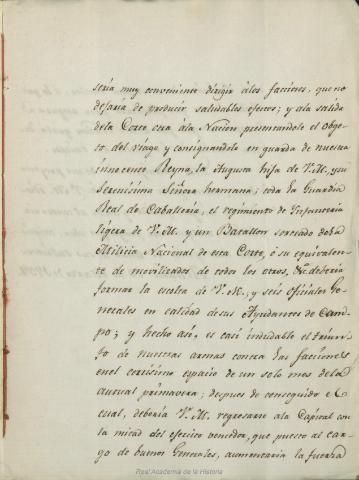 sería muy conveniente dirigir á los facciosos, que no
dejaría de producir saludables efectos; y á la salida
de la Corte otra á la Nación presentandole el obge-
to del viage y consignandola en guarda de nuestra
innocente Reyna, la Augusta hija de V. M. y su
Serenísima Señora hermana; toda la Guardia
Real de Caballería, el regimiento de Infantería
ligera de V. M. y un Batallon sorteado de la
Milicia Nacional de esta Corte, ó su equivalen-
te de movilizados de todos los otros, debería
formar la escolta de V. M.; y seis oficiales Ge-
nerales en calidad de sus Ayudantes de Cam-
po; y hecho así, es casi indudable el triun-
fo de nuestras armas contra las facciones
en el cortísimo espacio de un solo mes de la
actual primavera; despues de conseguido el
cual, debería V. M. regresarse á la Capital con
la mitad del egército vencedor, que puesto al car-
go de buenos Generales, aumentaria la fuerza
Real Academia de la Historia